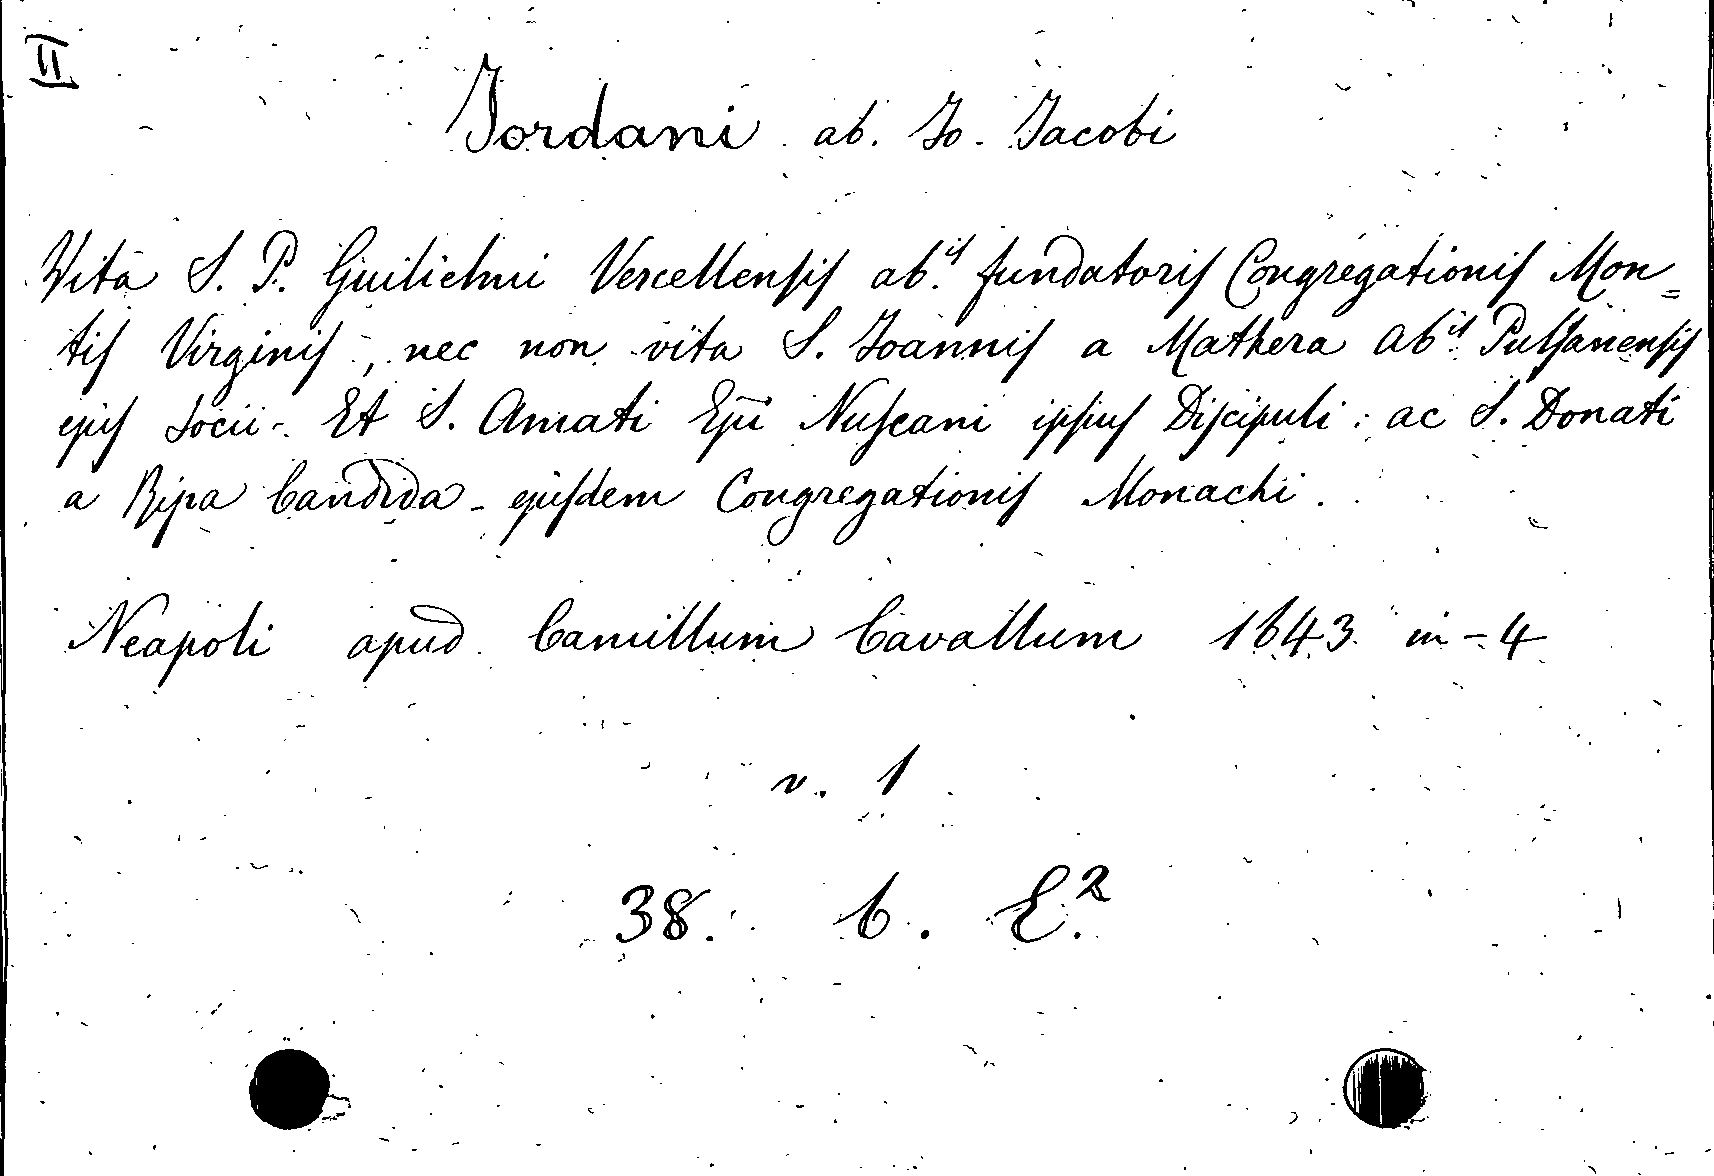 II
Jordani ab. Jo. Jacobi
Vita S. P. Guilielmi Vercellensis ab.is fundatoris Congregationis Mon=
tis Virginis, nec non vita S. Joannis a Mathera ab.is Pulsanensis
ejus socii. Et S. Amati Epĩ Nuscani ipsius Discipuli: ac S. Donati
a Ripa Candida ejusdem Congregationis Monachi.
Neapoli apud Camillum Cavallum 1643 in-4
v. 1
38. b. E.²